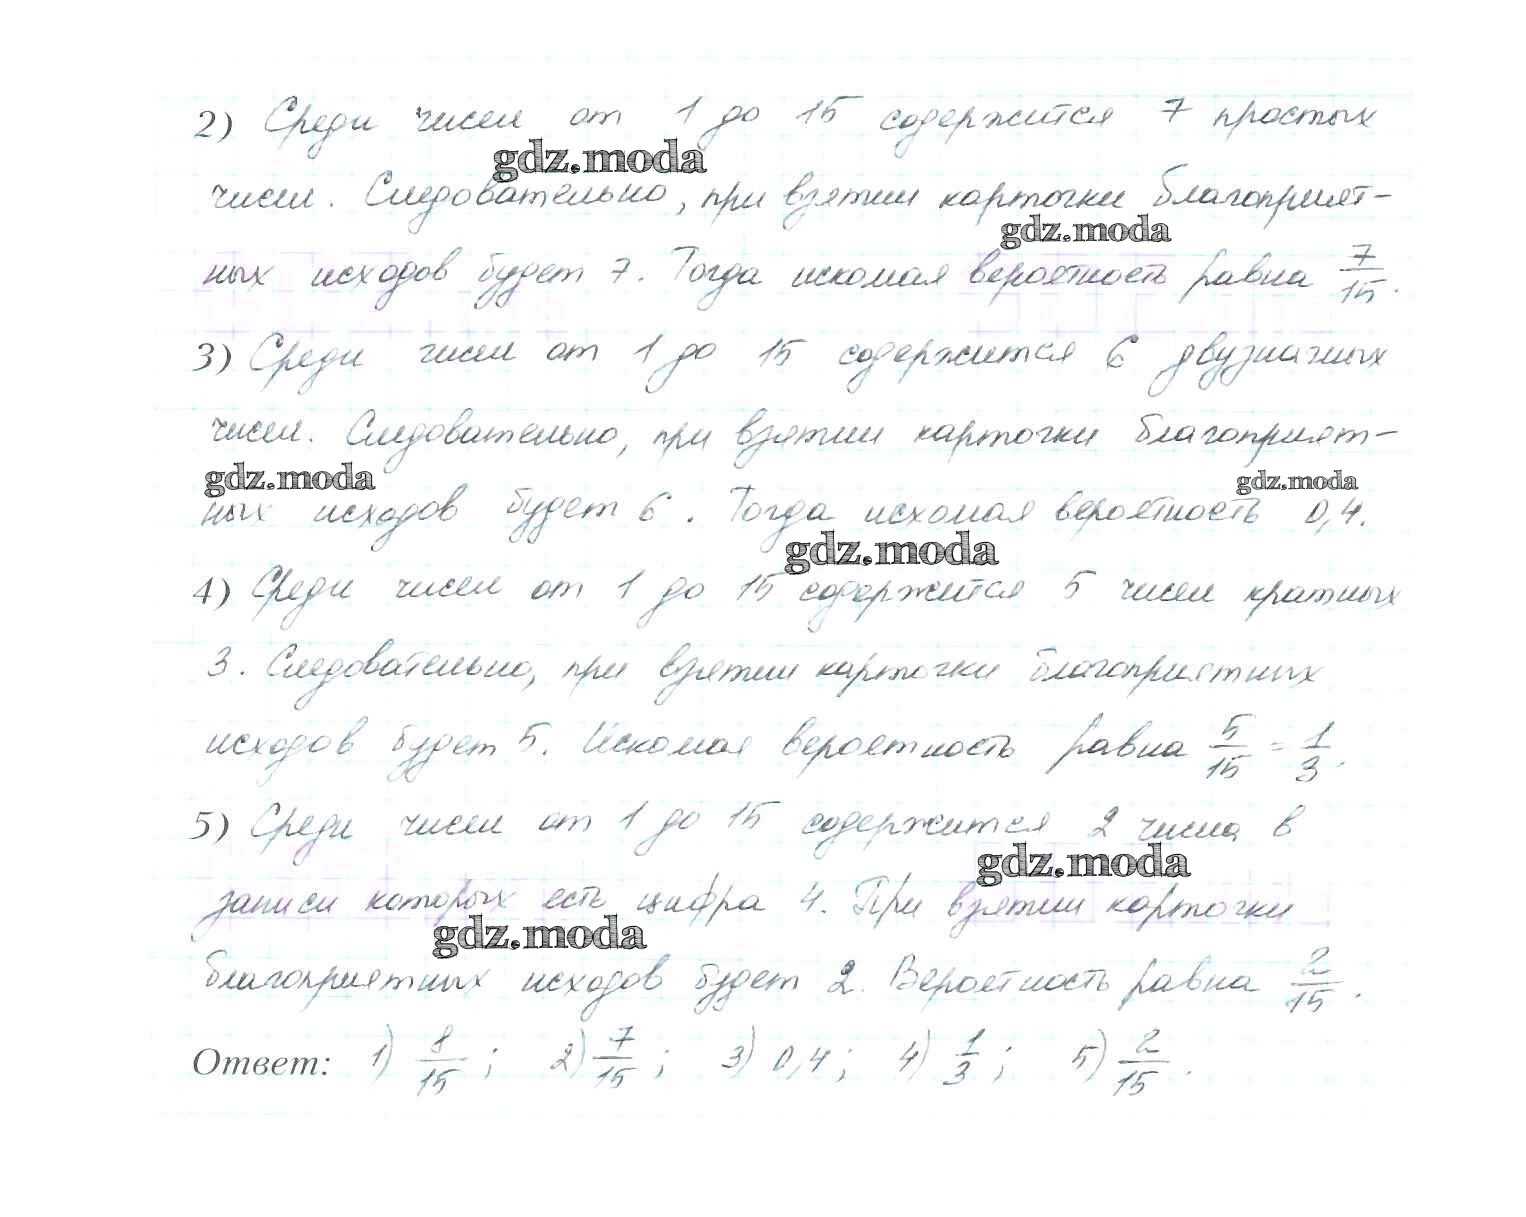 2) Среди чисел от 1 до 15 содержится 7 простых
gdz.moda
чисел. Следовательно, при взятии карточки благоприят-
gdz.moda
ных исходов будет 7. Тогда искомая вероятность равна 7/15.
3) Среди чисел от 1 до 15 содержится 6 двузначных
чисел. Следовательно, при взятии карточки благоприят-
gdz.moda gdz.moda
ных исходов будет 6. Тогда искомая вероятность 0,4.
gdz.moda
4) Среди чисел от 1 до 15 содержится 5 чисел кратных
3. Следовательно, при взятии карточки благоприятных
исходов будет 5. Искомая вероятность равна 5/15 = 1/3.
5) Среди чисел от 1 до 15 содержится 2 числа в
gdz.moda
записи которых есть цифра 4. При взятии карточки
gdz.moda
благоприятных исходов будет 2. Вероятность равна 2/15.
Ответ: 1) 8/15; 2) 7/15; 3) 0,4; 4) 1/3; 5) 2/15.